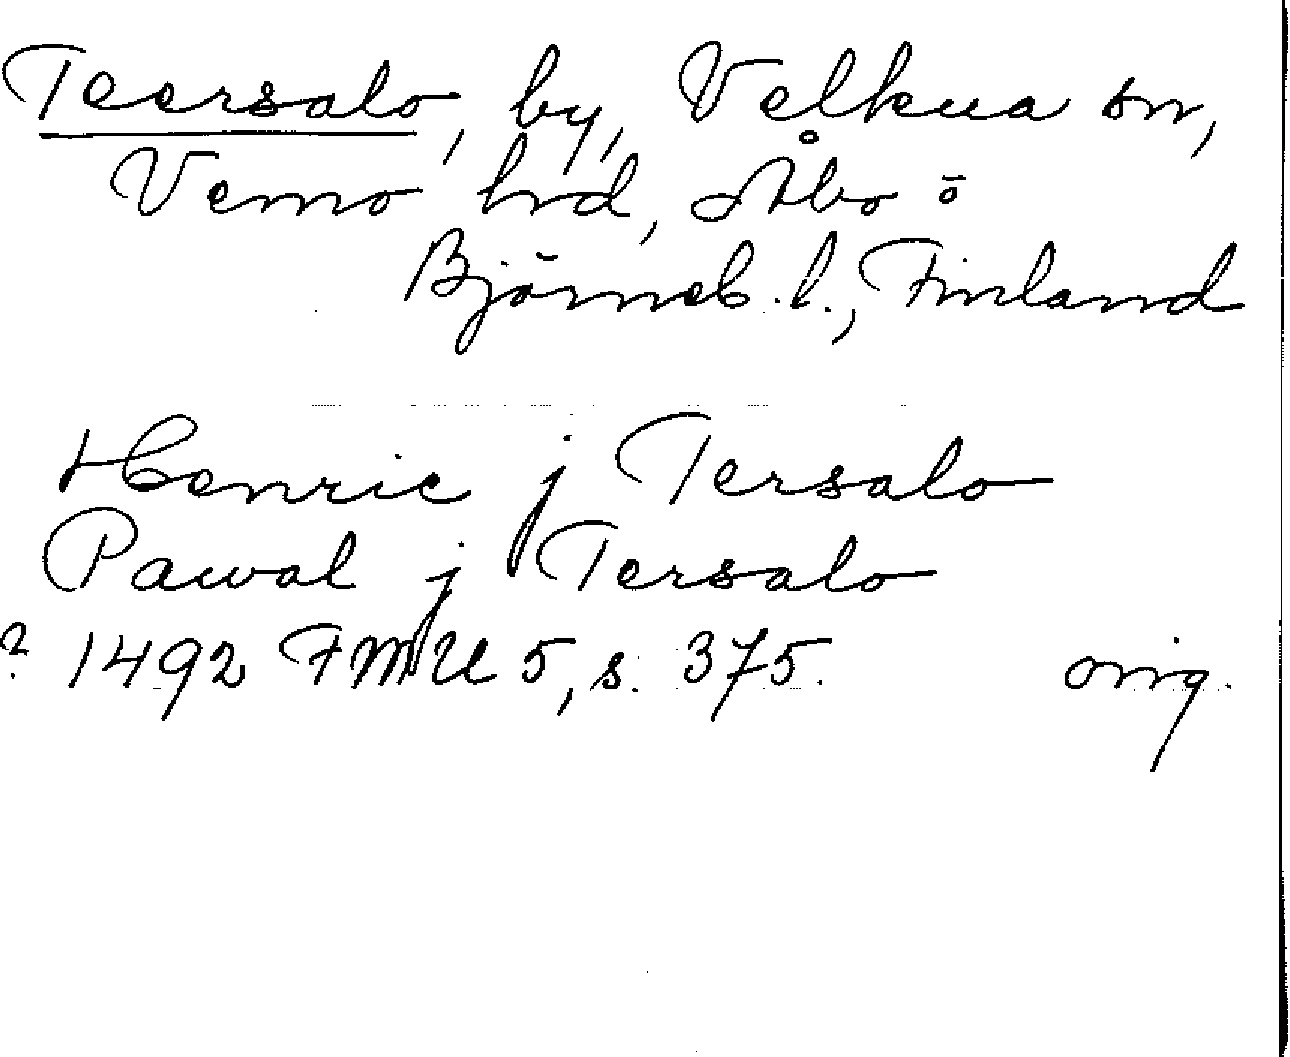 Teersalo, by, Velkua sn,
Vemo hrd, Åbo o
Björneb. l., Finland
Henric j Tersalo
Pawal j Tersalo
? 1492 FMU 5, s. 375. orig.